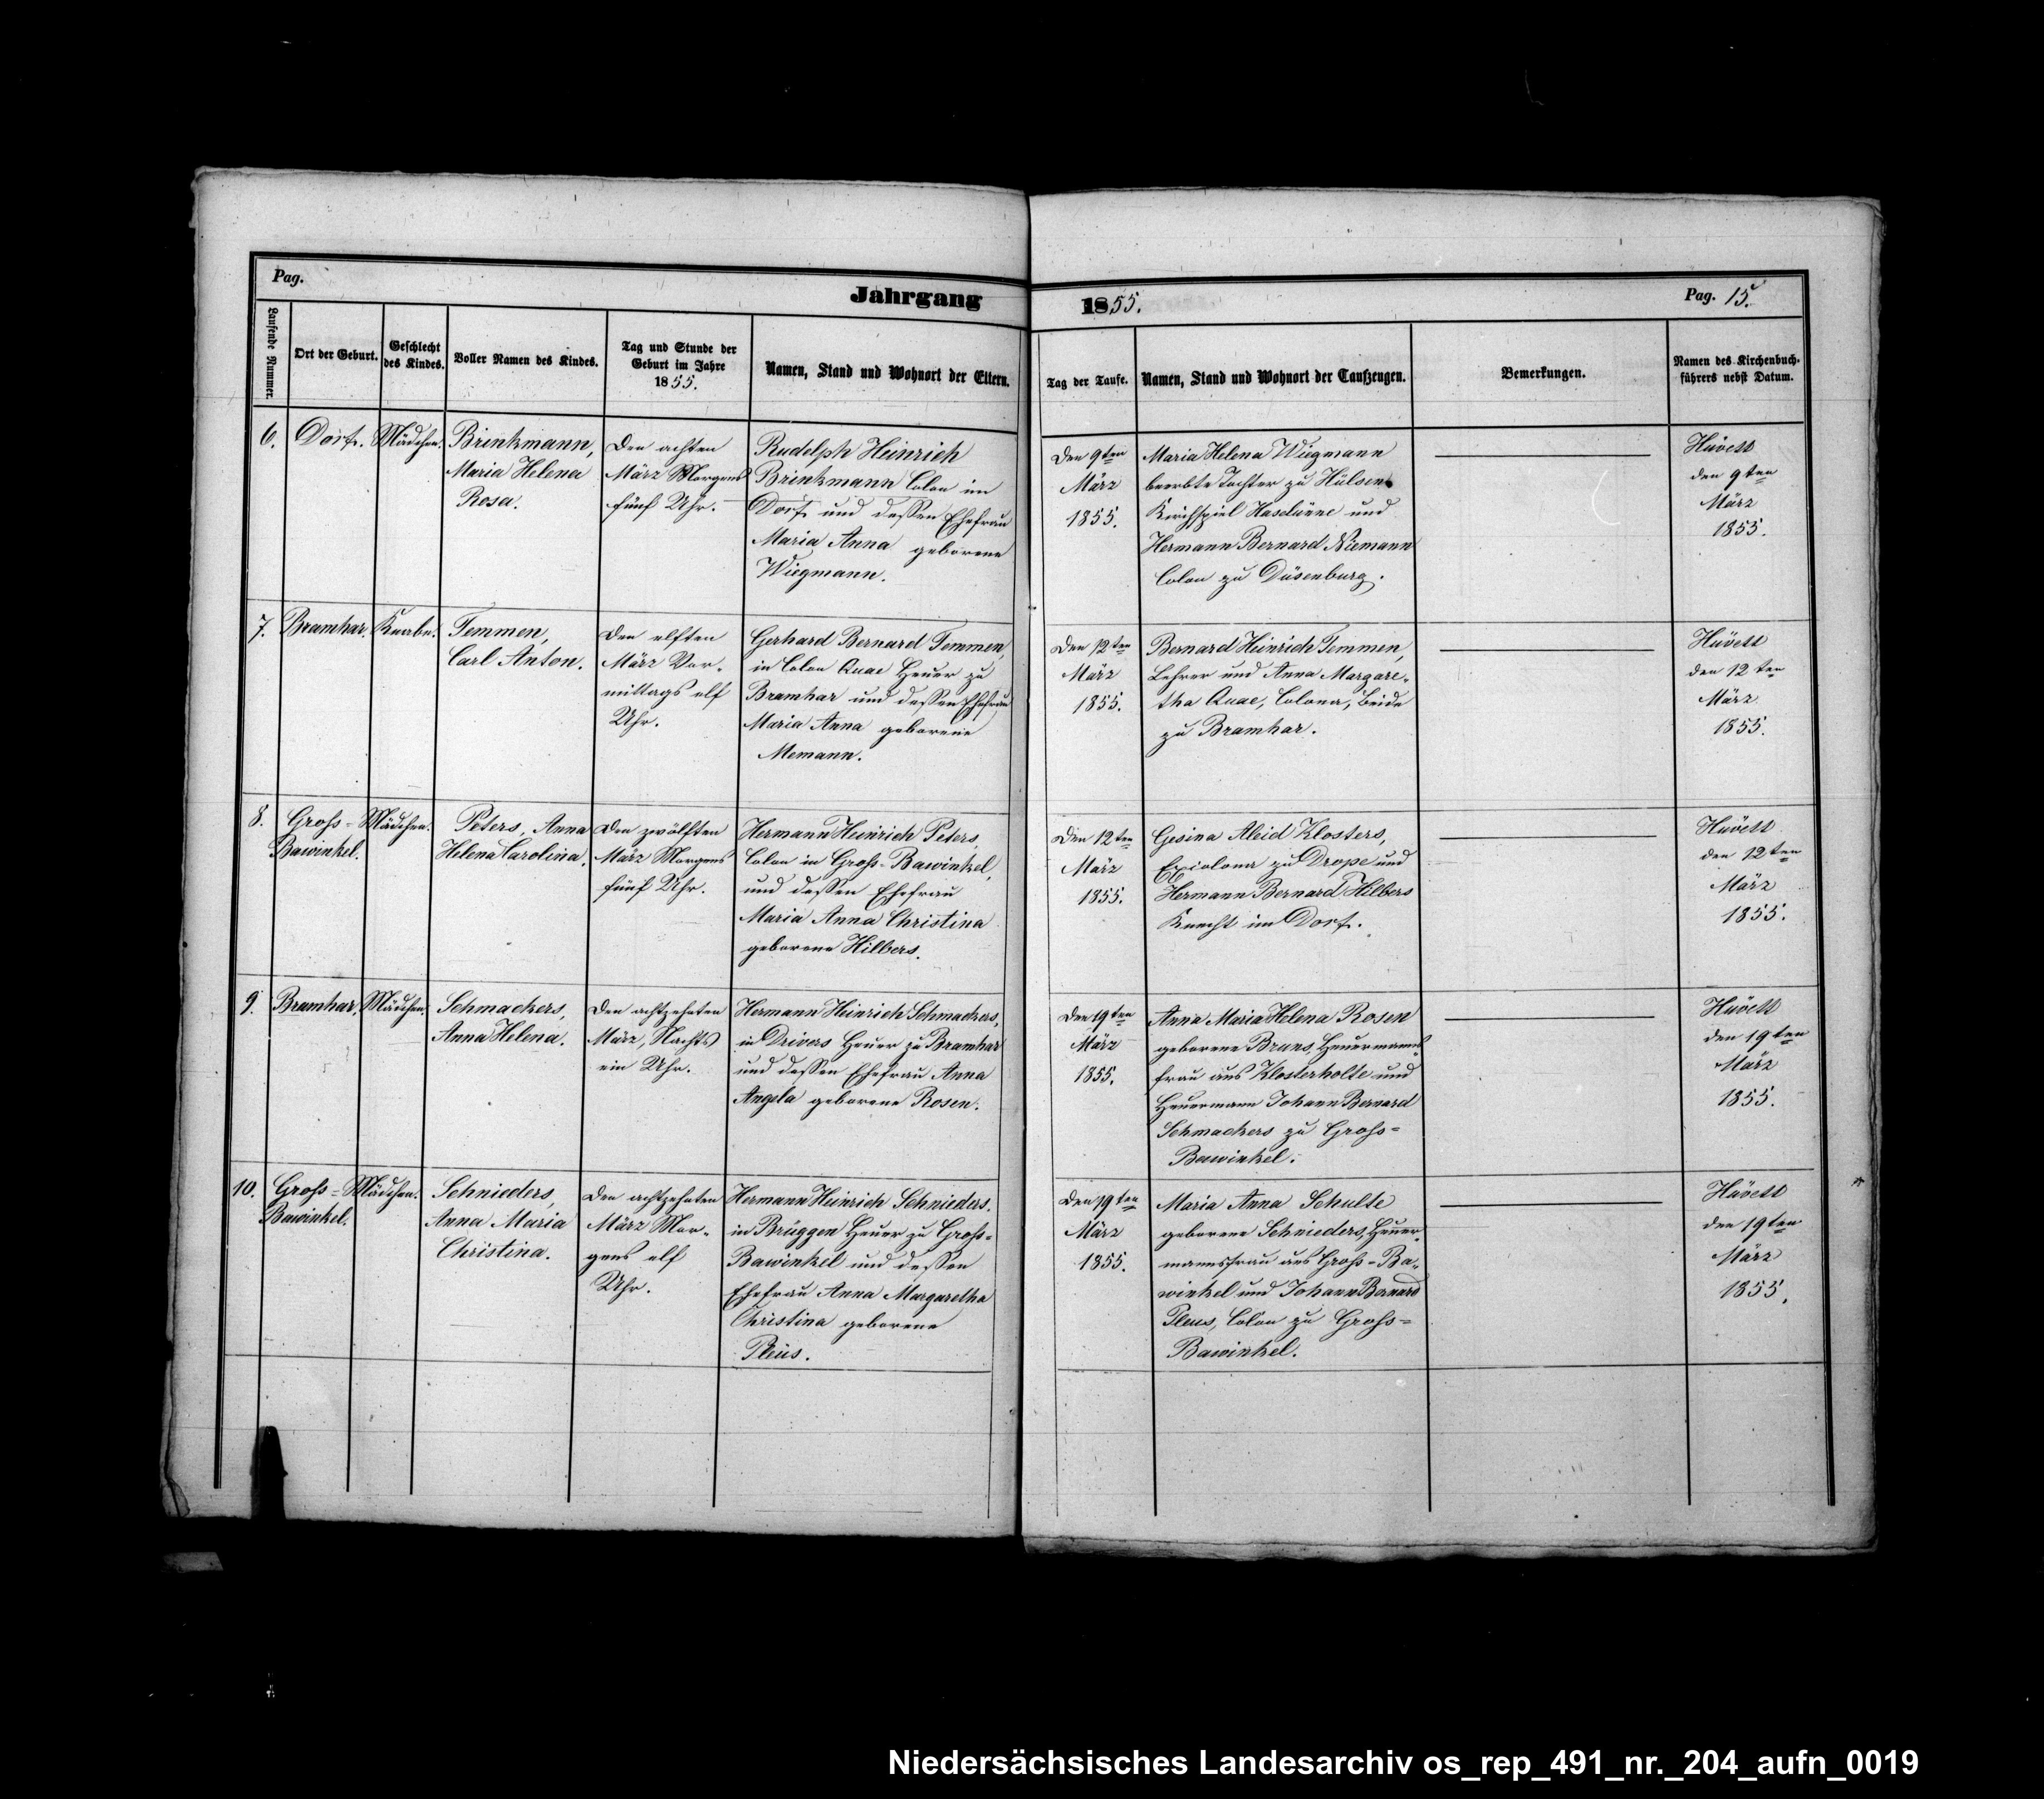 Pag.
Jahrgang 1855.
Pag. 15.
Laufende Nummer.
Ort der Geburt.
Geschlecht
des Kindes.
Voller Namen des Kindes.
Tag und Stunde der
Geburt im Jahre
1855.
Namen, Stand und Wohnort der Eltern.
Tag der Taufe.
Namen, Stand und Wohnort der Taufzeugen.
Bemerkungen.
Namen des Kirchenbuch-
führers nebst Datum.
6.
Dorf.
Mädchen.
Brinkmann,
Maria Helena
Rosa.
Den achten
März Morgens
fünf Uhr.
Rudolph Heinrich
Brinkmann Colon im
Dorf und dessen Ehefrau
Maria Anna geborene
Wiegmann.
Den 9ten
März
1855.
Maria Helena Wiegmann
beerbte Tochter zu Hülsen
Kirchspiel Haselünne und
Hermann Bernard Niemann
Colon zu Düsenburg.
Hüvett
den 9ten
März
1855.
7.
Bramhar.
Knabe.
Temmen,
Carl Anton.
Den elften
März Vor-
mittags elf
Uhr.
Gerhard Bernard Temmen,
in Colon Quae Heuer zu
Bramhar und dessen Ehefrau
Maria Anna geborene
Memann.
Den 12ten
März
1855.
Bernard Heinrich Temmen,
Lehrer und Anna Margare-
tha Quae, Colona, beide
zu Bramhar.
Hüvett
den 12ten
März
1855.
8.
Groß-
Bawinkel.
Mädchen.
Peters, Anna
Helena Carolina.
Den zwölften
März Morgens
fünf Uhr.
Hermann Heinrich Peters,
Colon in Groß-Bawinkel,
und dessen Ehefrau
Maria Anna Christina
geborene Hilbers.
Den 12ten
März
1855.
Gesina Aleid Klosters,
Excolona zu Drope und
Hermann Bernard Hilbers
Knecht im Dorf.
Hüvett
den 12ten
März
1855.
9.
Bramhar.
Mädchen.
Schmackers,
Anna Helena.
Den achtzehnten
März, Nachts
ein Uhr.
Hermann Heinrich Schmackers,
in Drivers Heuer zu Bramhar
und dessen Ehefrau Anna
Angela geborene Rosen.
Den 19ten
März
1855.
Anna Maria Helena Rosen
geborene Bruns, Heuermanns-
frau aus Klosterholte und
Heuermann Johann Bernard
Schmackers zu Groß-
Bawinkel.
Hüvett
den 19ten
März
1855.
10.
Groß-
Bawinkel.
Mädchen.
Schnieders,
Anna Maria
Christina.
Den achtzehnten
März Mor-
gens elf
Uhr.
Hermann Heinrich Schnieders,
in Brüggen Heuer zu Groß-
Bawinkel und dessen
Ehefrau Anna Margaretha
Christina geborene
Pleus.
Den 19ten
März
1855.
Maria Anna Schulte
geborene Schnieders, Heuer-
mannsfrau aus Groß-Ba-
winkel und Johann Bernard
Pleus, Colon zu Groß-
Bawinkel.
Hüvett
den 19ten
März
1855.
Niedersächsisches Landesarchiv os_rep_491_nr._204_aufn_0019